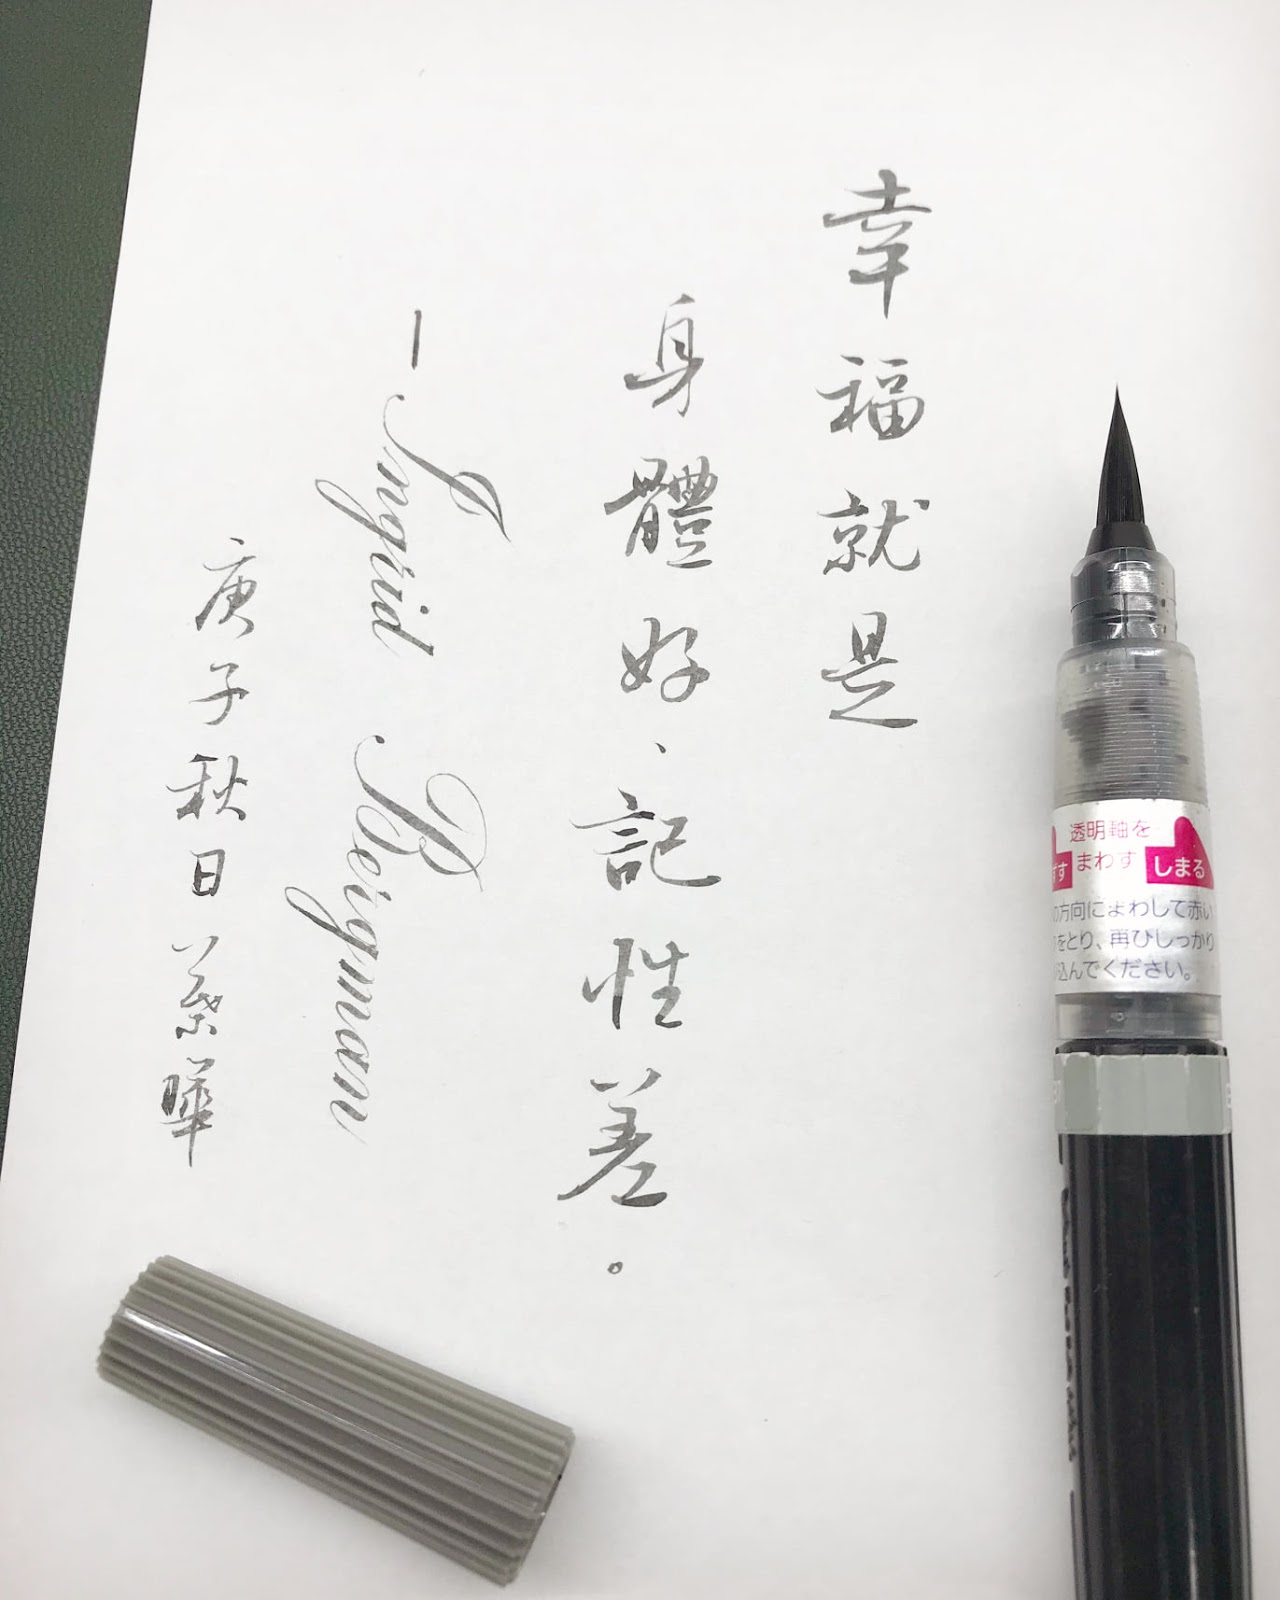 幸福就是
身體好、記性差。
– Ingrid Bergman
庚子秋日 葉曄
透明軸を
まわす
しまる
の方向にまわして赤い
をとり、再びしっかり
込んでください。